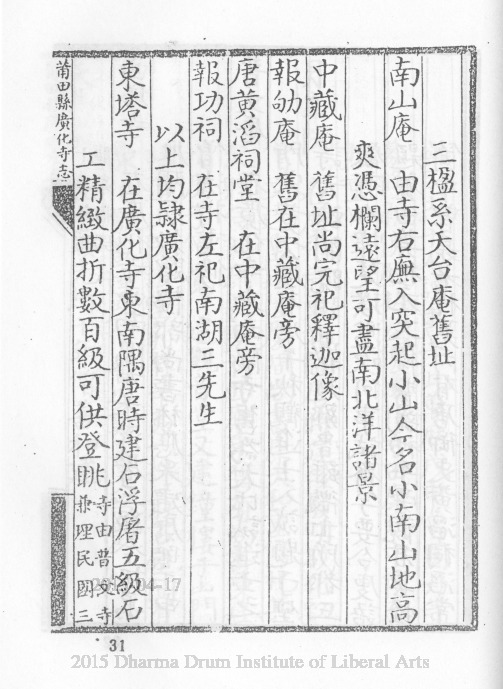 三楹系天台庵舊址
南山庵　由寺右廡入突起小山今名小南山地高
爽憑欄遠望可盡南北洋諸景
中藏庵　舊址尚完祀釋迦像
報劬庵　舊在中藏庵旁
唐黃滔祠堂　在中藏庵旁
報功祠　在寺左祀南湖三先生
以上均隷廣化寺
東塔寺　在廣化寺東南隅唐時建石浮屠五級石
工精緻曲折數百級可供登眺寺由普文寺
兼理民國三
莆田縣廣化寺志
31
2015 Dharma Drum Institute of Liberal Arts